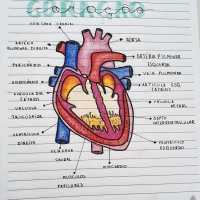 CORAÇÃO
VEIA CAVA CRANIAL
AORTA
ARTÉRIA
PULMONAR DIREITA
ARTÉRIA PULMONAR
ESQUERDA
PERICÁRDIO
VEIA PULMONAR
ENDOCÁRDIO
(ÁTRIO)
VALVULA
TRICÚSPIDE
VALVULA
MITRAL
SEPTO
INTERVENTRICULAR
VENTRÍCULO
DIREITO
VENTRÍCULO
ESQUERDO
VEIA CAVA
CAUDAL
MIOCÁRDIO
MÚSCULOS
PAPILARES